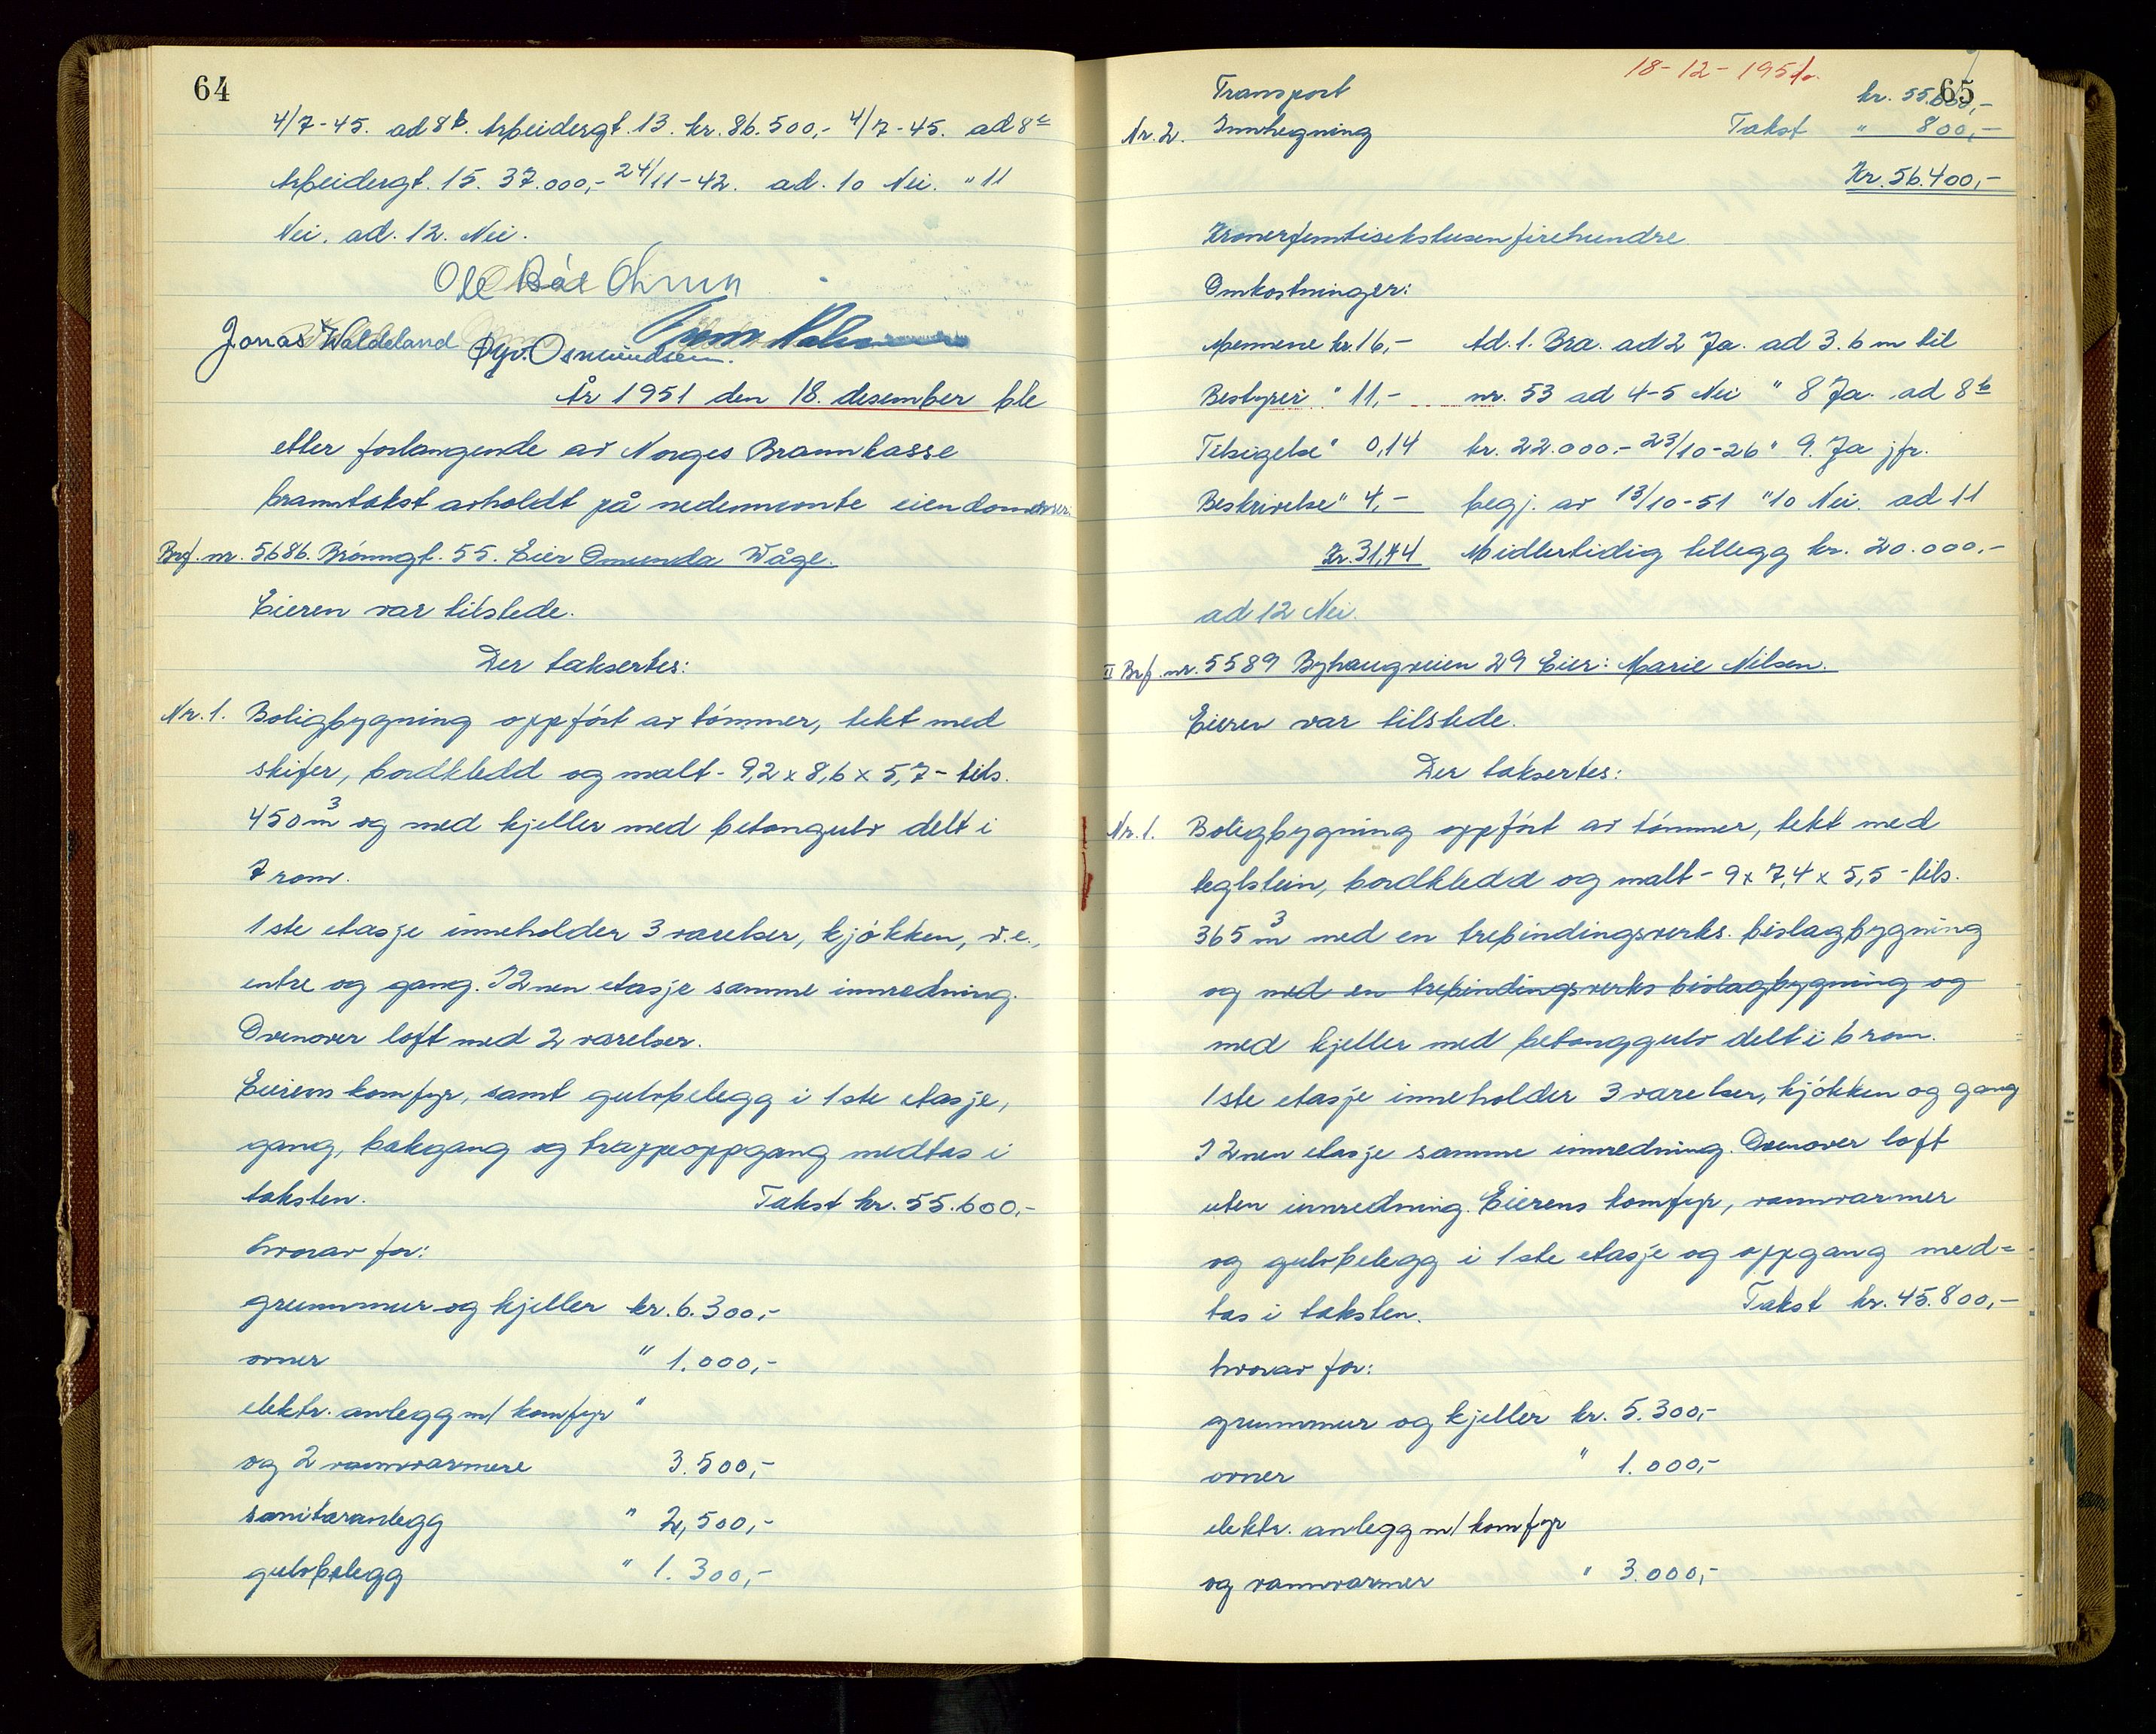 64
4/7-45. ad 8b. Arbeidergt. 13. kr. 86.500,- 4/7-45. ad 8c
Arbeidergt. 15. 37.000,- 24/11-42. ad. 10 Nei. " 11
Nei. ad. 12. Nei.
Jonas Waldeland Osmundsen.
År 1951 den 18. desember ble
etter forlangende av Norges Brannkasse
branntakst avholdt på nedennevnte eiendommer.
Brf. nr. 5686. Brønngt. 55. Eier Omunda Våge.
Eieren var tilstede.
Der taksertes:
Nr. 1. Boligbygning oppført av tømmer, tekt med
skifer, bordkledd og malt - 9,2 x 8,6 x 5,7 - tils.
450 m3 og med kjeller med betongulv delt i
7 rom.
1ste etasje inneholder 3 varelser, kjøkken, v.c.,
entre og gang. I 2nen etasje samme innredning.
Ovenover loft med 2 varelser.
Eierens komfyr, samt gulvbelegg i 1ste etasje,
gang, bakgang og trappeoppgang medtas i
taksten. Takst kr. 55.600,-
hvorav for:
grunnmur og kjeller kr. 6.300,-
ovner " 1.000,-
elektr. anlegg m/ komfyr "
og 2 vannvarmere 3.500,-
sanitæranlegg " 2,500,-
gulvbelegg " 1.300,-
18-12-1951.
65
Transport kr. 55.600,-
Nr. 2. Innhegning Takst " 800,-
Kr. 56.400,-
Kronerfemtisekstusenfirehundre
Omkostninger:
Mennene kr. 16,- Ad. 1. Bra. ad 2 Ja. ad 3. 6 m til
Bestyrer " 11,- nr. 53 ad 4-5 Nei " 8 Ja. ad 8b
Tilsigelse " 0,14 kr. 22.000.- 23/10-26 " 9. Ja jfr.
Beskrivelse " 4,- begj. av 13/10-51 " 10 Nei. ad 11
Kr. 31,44 Midlertidig tillegg kr. 20.000.-
ad 12 Nei.
II Brf. nr. 5589 Byhaugveien 29 Eier: Marie Nilsen.
Eieren var tilstede.
Der taksertes:
Nr. 1. Boligbygning oppført av tømmer, tekt med
teglstein, bordkledd og malt - 9 x 7,4 x 5,5 - tils.
365 m3 med en trebindingsverks. bislagbygning
og med en trebindingsverks bislagbygning og
med kjeller med betonggulv delt i 6 rom.
1ste etasje inneholder 3 varelser, kjøkken og gang
I 2nen etasje samme innredning. Ovenover loft
uten innredning. Eierens komfyr, vannvarmer
og gulvbelegg i 1ste etasje og oppgang med=
tas i taksten. Takst kr. 45.800,-
hvorav for:
grunnmur og kjeller kr. 5.300,-
ovner " 1.000,-
elektr. anlegg m/ komfyr
og vannvarmer " 3.000,-